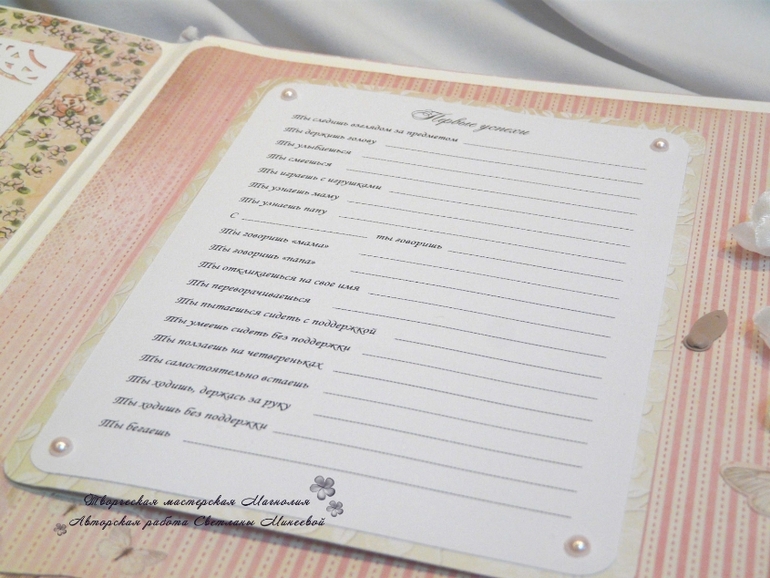 Первые успехи
Ты следишь взглядом за предметом
Ты держишь голову
Ты улыбаешься
Ты смеешься
Ты играешь с игрушками
Ты узнаешь маму
Ты узнаешь папу
С ты говоришь
Ты говоришь «мама»
Ты говоришь «папа»
Ты откликаешься на свое имя
Ты переворачиваешься
Ты пытаешься сидеть с поддержкой
Ты умеешь сидеть без поддержки
Ты ползаешь на четвереньках
Ты самостоятельно встаешь
Ты ходишь, держась за руку
Ты ходишь без поддержки
Ты бегаешь
Творческая мастерская Магнолия
Авторская работа Светланы Минеевой